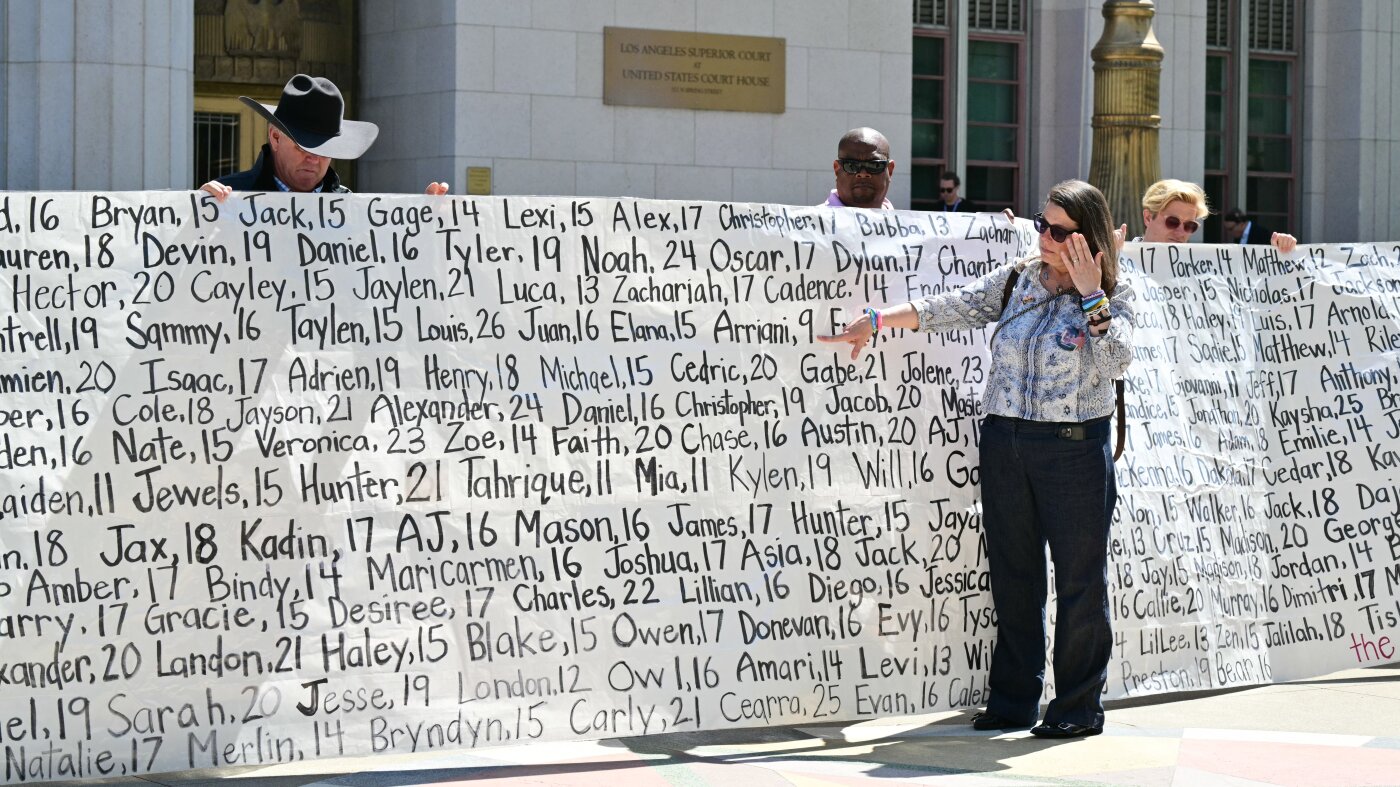 LOS ANGELES SUPERIOR COURT
AT
UNITED STATES COURT HOUSE
, 16 Bryan, 15 Jack, 15 Gage, 14 Lexi, 15 Alex, 17 Christopher, 17 Bubba, 13 Zachary, 17 Parker, 14 Matthew, 12 Zach,
auren, 18 Devin, 19 Daniel, 16 Tyler, 19 Noah, 24 Oscar, 17 Dylan, 17 Jasper, 15 Nicholas, 17 Jackson
Hector, 20 Cayley, 15 Jaylen, 21 Luca, 13 Zachariah, 17 Cadence, 14 Haley, 19 Luis, 17 Arnold
ntrell, 19 Sammy, 16 Taylen, 15 Louis, 26 Juan, 16 Elana, 15 Arriani, 9 Sadie, 15 Matthew, 14 Rile
mien, 20 Isaac, 17 Adrien, 19 Henry, 18 Michael, 15 Cedric, 20 Gabe, 21 Jolene, 23 Giovanni, 11 Jeff, 17 Anthony,
per, 16 Cole, 18 Jayson, 21 Alexander, 24 Daniel, 16 Christopher, 19 Jacob, 20 Jonathan, 20 Kaysha, 25
den, 16 Nate, 15 Veronica, 23 Zoe, 14 Faith, 20 Chase, 16 Austin, 20 AJ, James, 16 Adam, 18 Emilie, 14
aiden, 11 Jewels, 15 Hunter, 21 Tahrique, 11 Mia, 11 Kylen, 19 Will, 16 cKenna, 16 Dakota, 17 Cedar, 18
n, 18 Jax, 18 Kadin, 17 AJ, 16 Mason, 16 James, 17 Hunter, 15 Von, 15 Walker, 16 Jack, 18
Amber, 17 Bindy, 14 Maricarmen, 16 Joshua, 17 Asia, 18 Jack, 20 13 Cruz, 15 Madison, 20 Georg
arry, 17 Gracie, 15 Desiree, 17 Charles, 22 Lillian, 16 Diego, 16 Jessica 18 Jay, 15 Madison, 18 Jordan, 14
xander, 20 Landon, 21 Haley, 15 Blake, 15 Owen, 17 Donevan, 16 Evy, 16 16 Callie, 20 Murray, 16 Dimitri, 17
el, 19 Sarah, 20 Jesse, 19 London, 12 Owl, 16 Amari, 14 Levi, 13 LilLee, 13 Zen, 15 Jalilah, 18
Natalie, 17 Merlin, 14 Bryndyn, 15 Carly, 21 Cearra, 25 Evan, 16 Caleb Preston, 19 Bear, 16
the